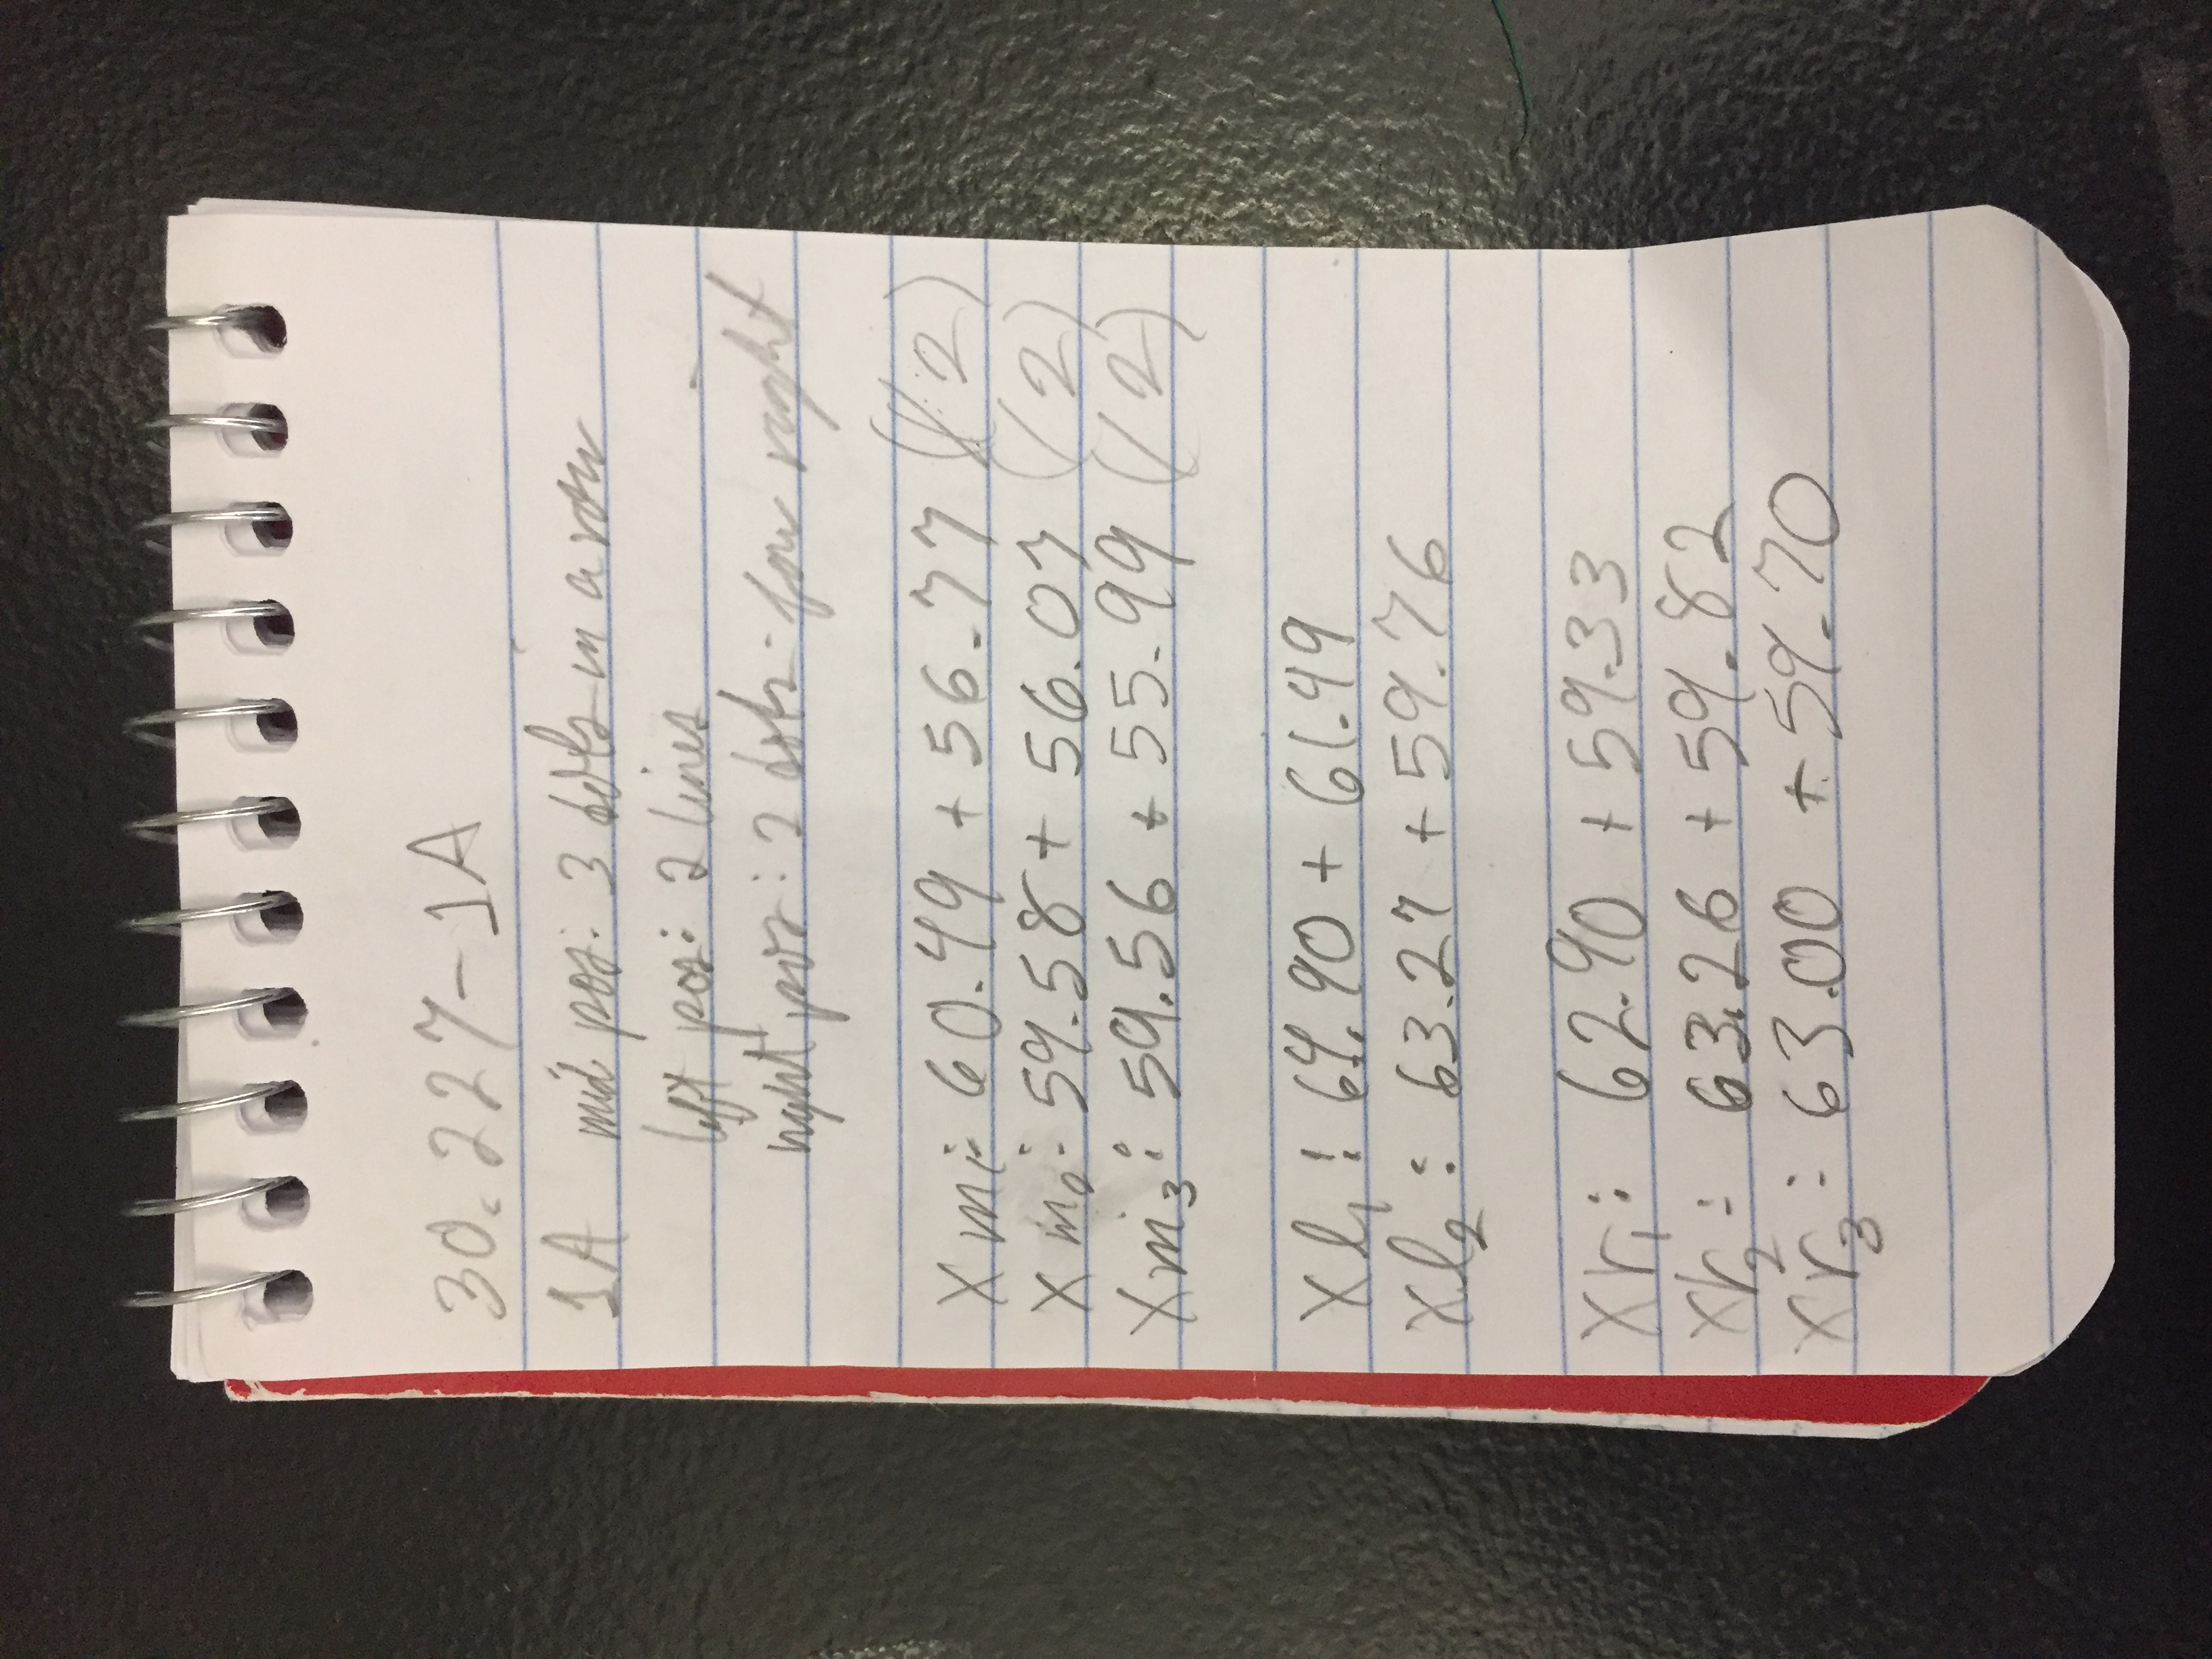 30.227-1A
1A mid pos: 3 dots in a row
left pos: 2 lines
right pos: 2 dots - far right
Xm1: 60.49 + 56.77 (/2)
Xm2: 59.58 + 56.07 (/2)
Xm3: 59.56 + 55.99 (/2)
Xl1: 64.90 + 61.49
Xl2: 63.27 + 59.76
Xr1: 62.90 + 59.33
Xr2: 63.26 + 59.82
Xr3: 63.00 + 59.70